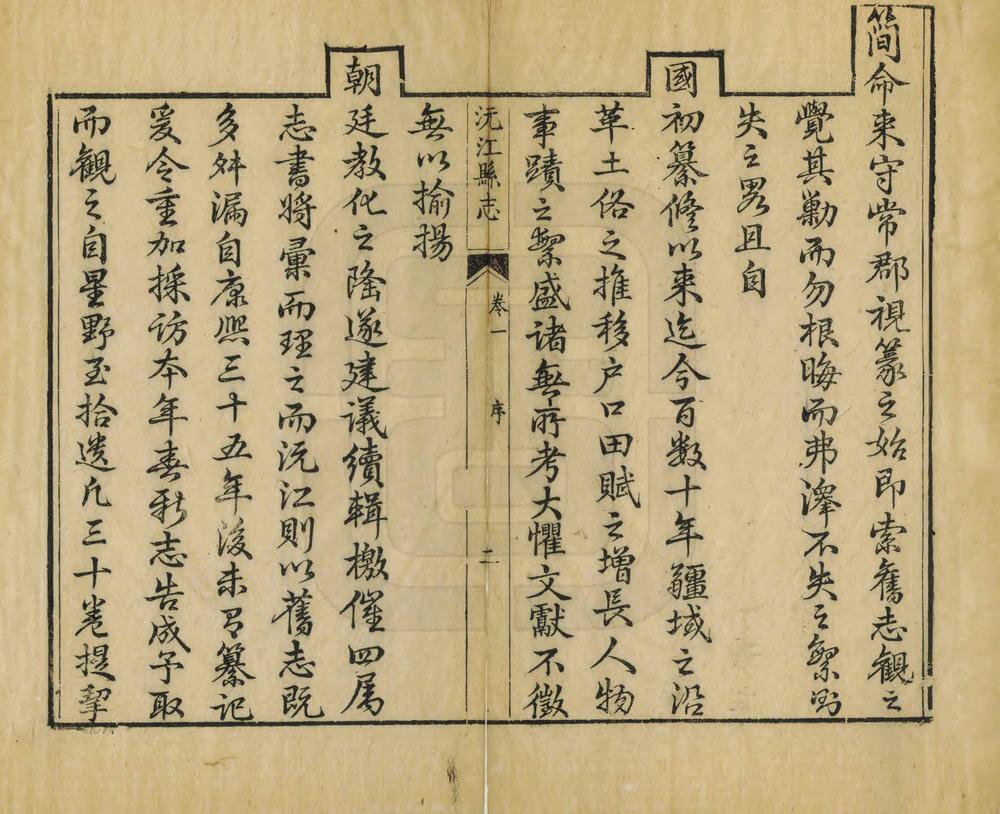 簡命來守常郡視篆之始即索舊志觀之
覺其勦而勿根晦而弗澤不失之繁則
失之畧且自
國初纂修以來迄今百數十年疆域之沿
革土俗之推移户口田賦之增長人物
事蹟之繁盛諸無所考大懼文獻不徵
沅江縣志 卷一 序 二
無以揄揚
朝廷教化之隆遂建議續輯檄催四属
志書將彙而理之而沅江則以舊志既
多舛漏自康熙三十五年後未有纂記
爰令重加採访本年春新志告成予取
而觀之自星野至拾遺凡三十卷提挈